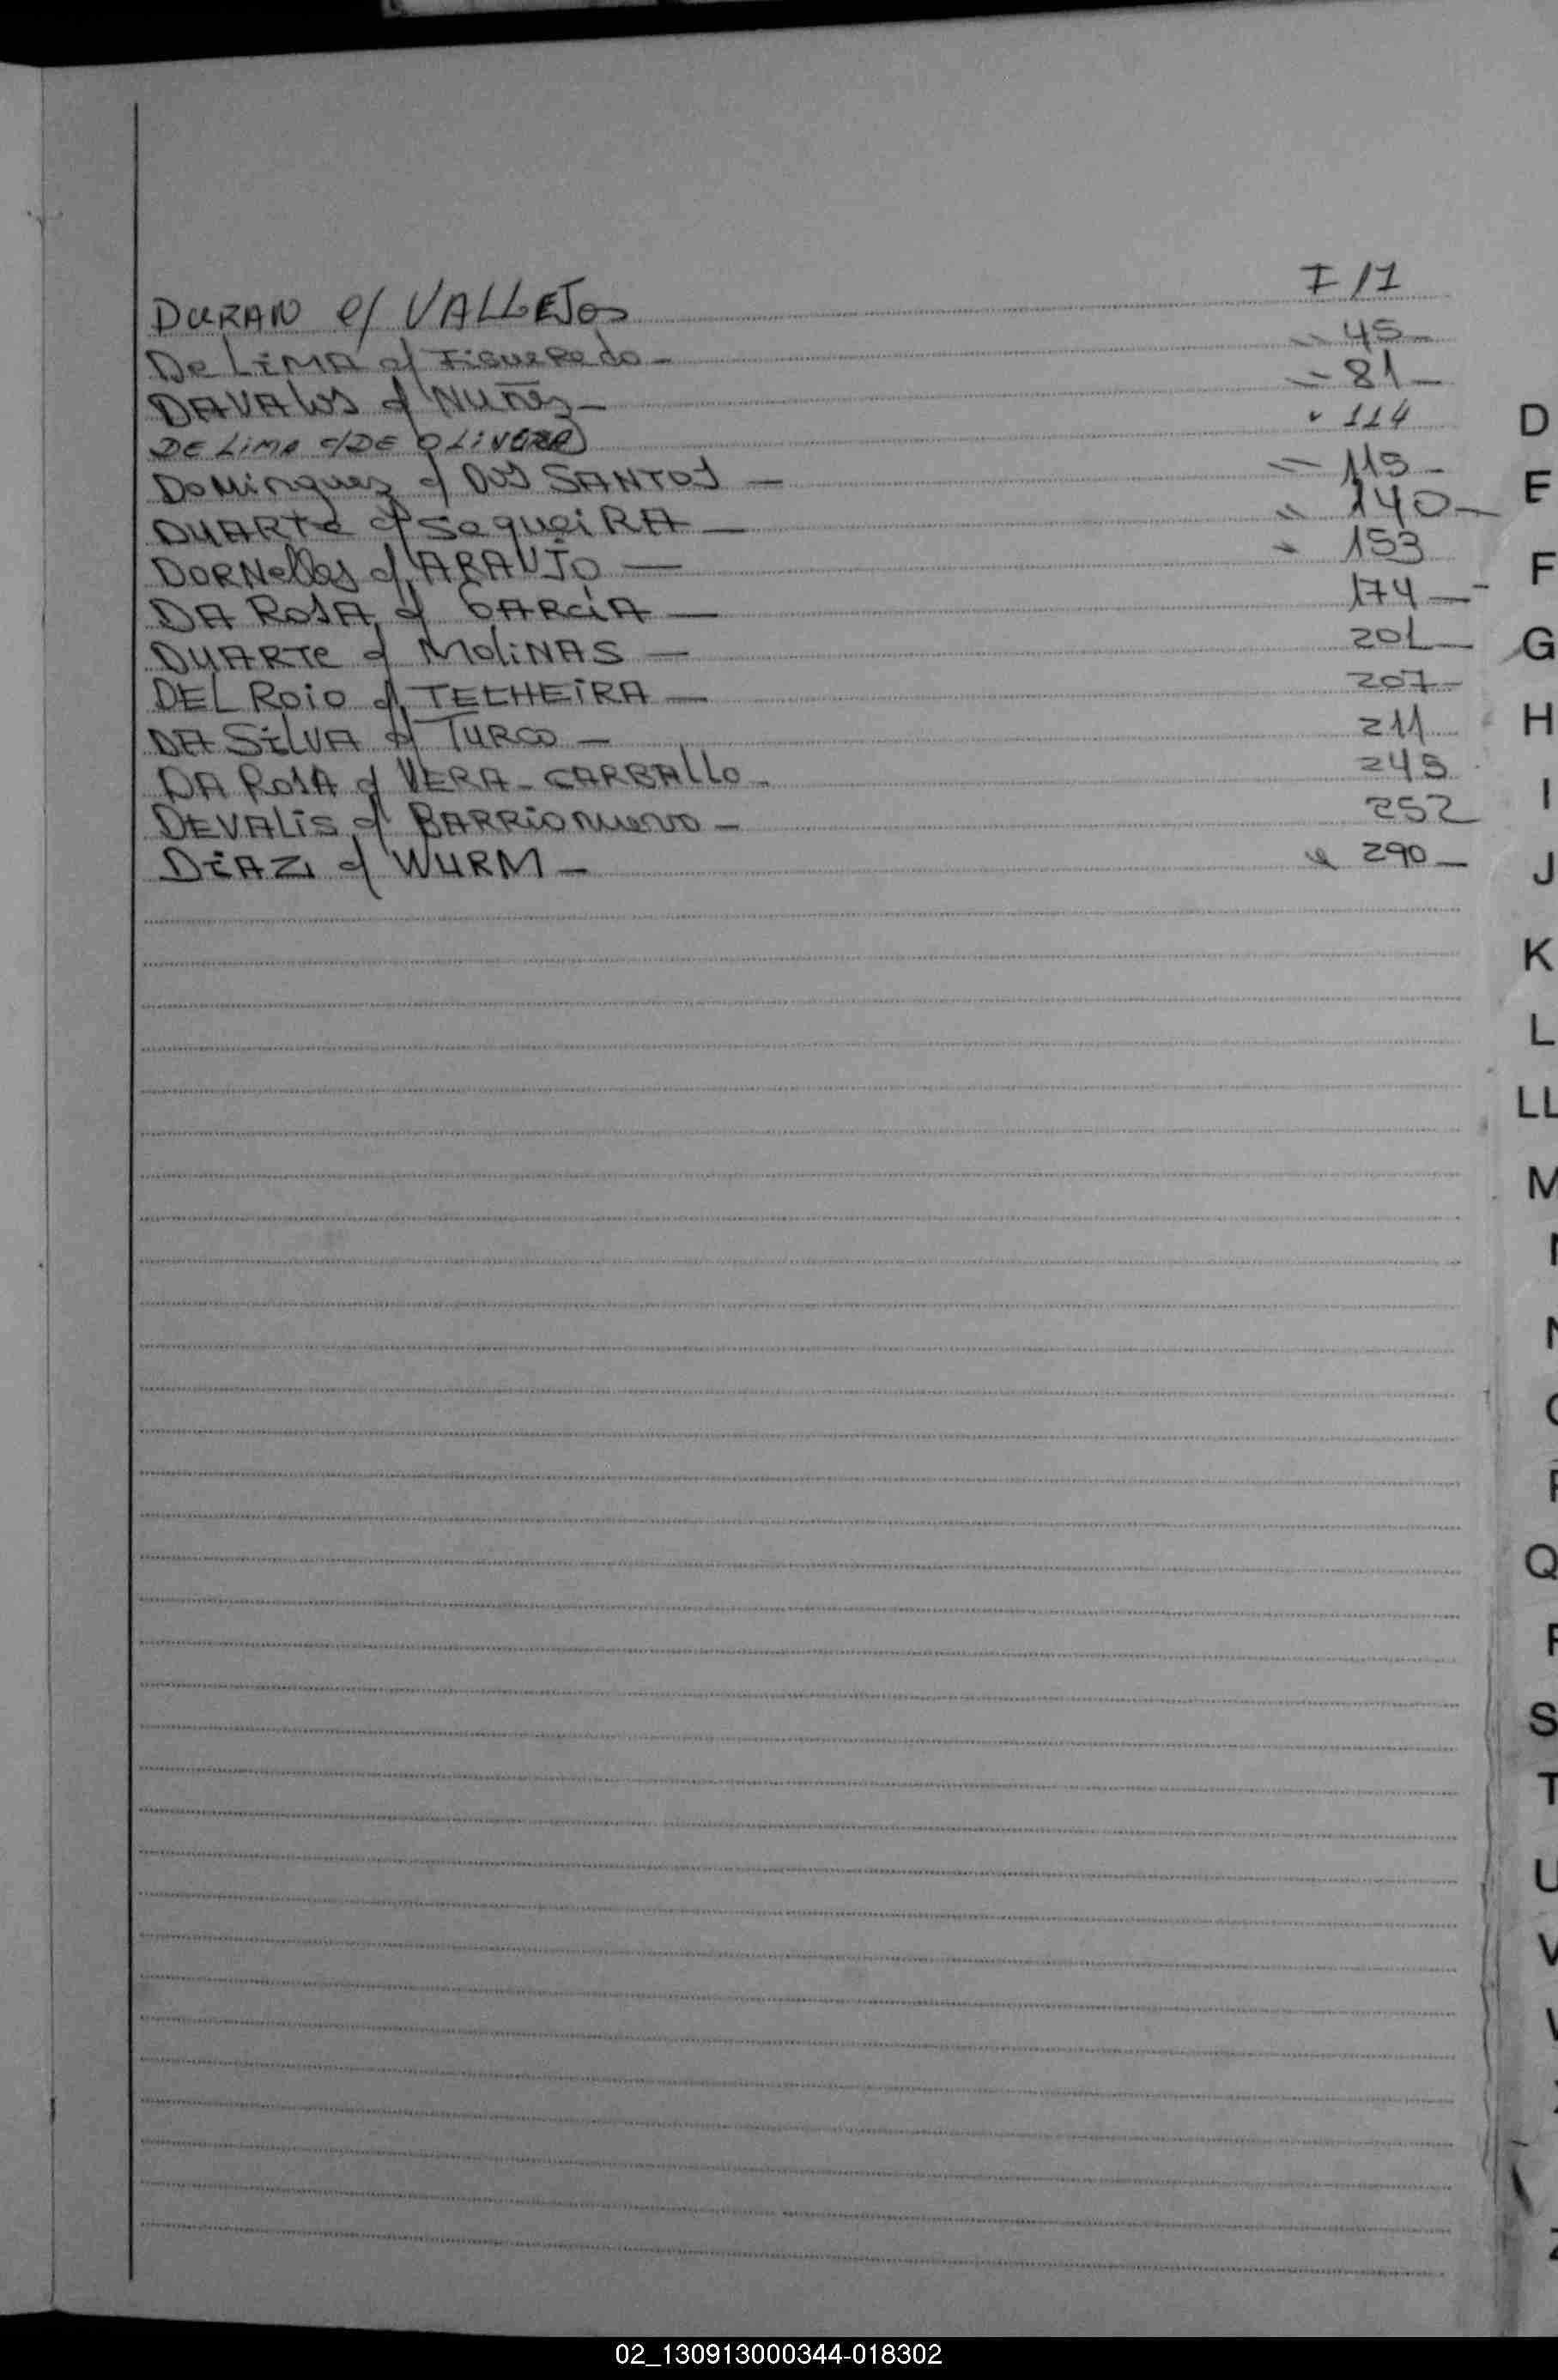 DURAN c/ VALLEJOS I/1
De LiMA c/ FigueRedo - " 45 -
DAVAlos c/ NuÑez - " 81 -
DE LIMA c/DE OLIVERA " 114
DoMinguez c/ DOS SANTOS - " 115 -
DUARTe c/ SequeiRA - " 140 -
DORNelles c/ ARAUJO - " 153
DA ROSA c/ GARCIA - 174 -
DUARTe c/ MoliNAS - 201 -
DEL Roio c/ TECHEIRA - 207 -
DA SILVA c/ TURCO - 211
DA ROSA c/ VERA - CARBAllo - 245
DEVALIS c/ BARRIOnuevo - 252
DIAZ c/ WURM - " 290 -
D
E
F
G
H
I
J
K
L
LL
M
Q
S
T
U
V
02_130913000344-018302